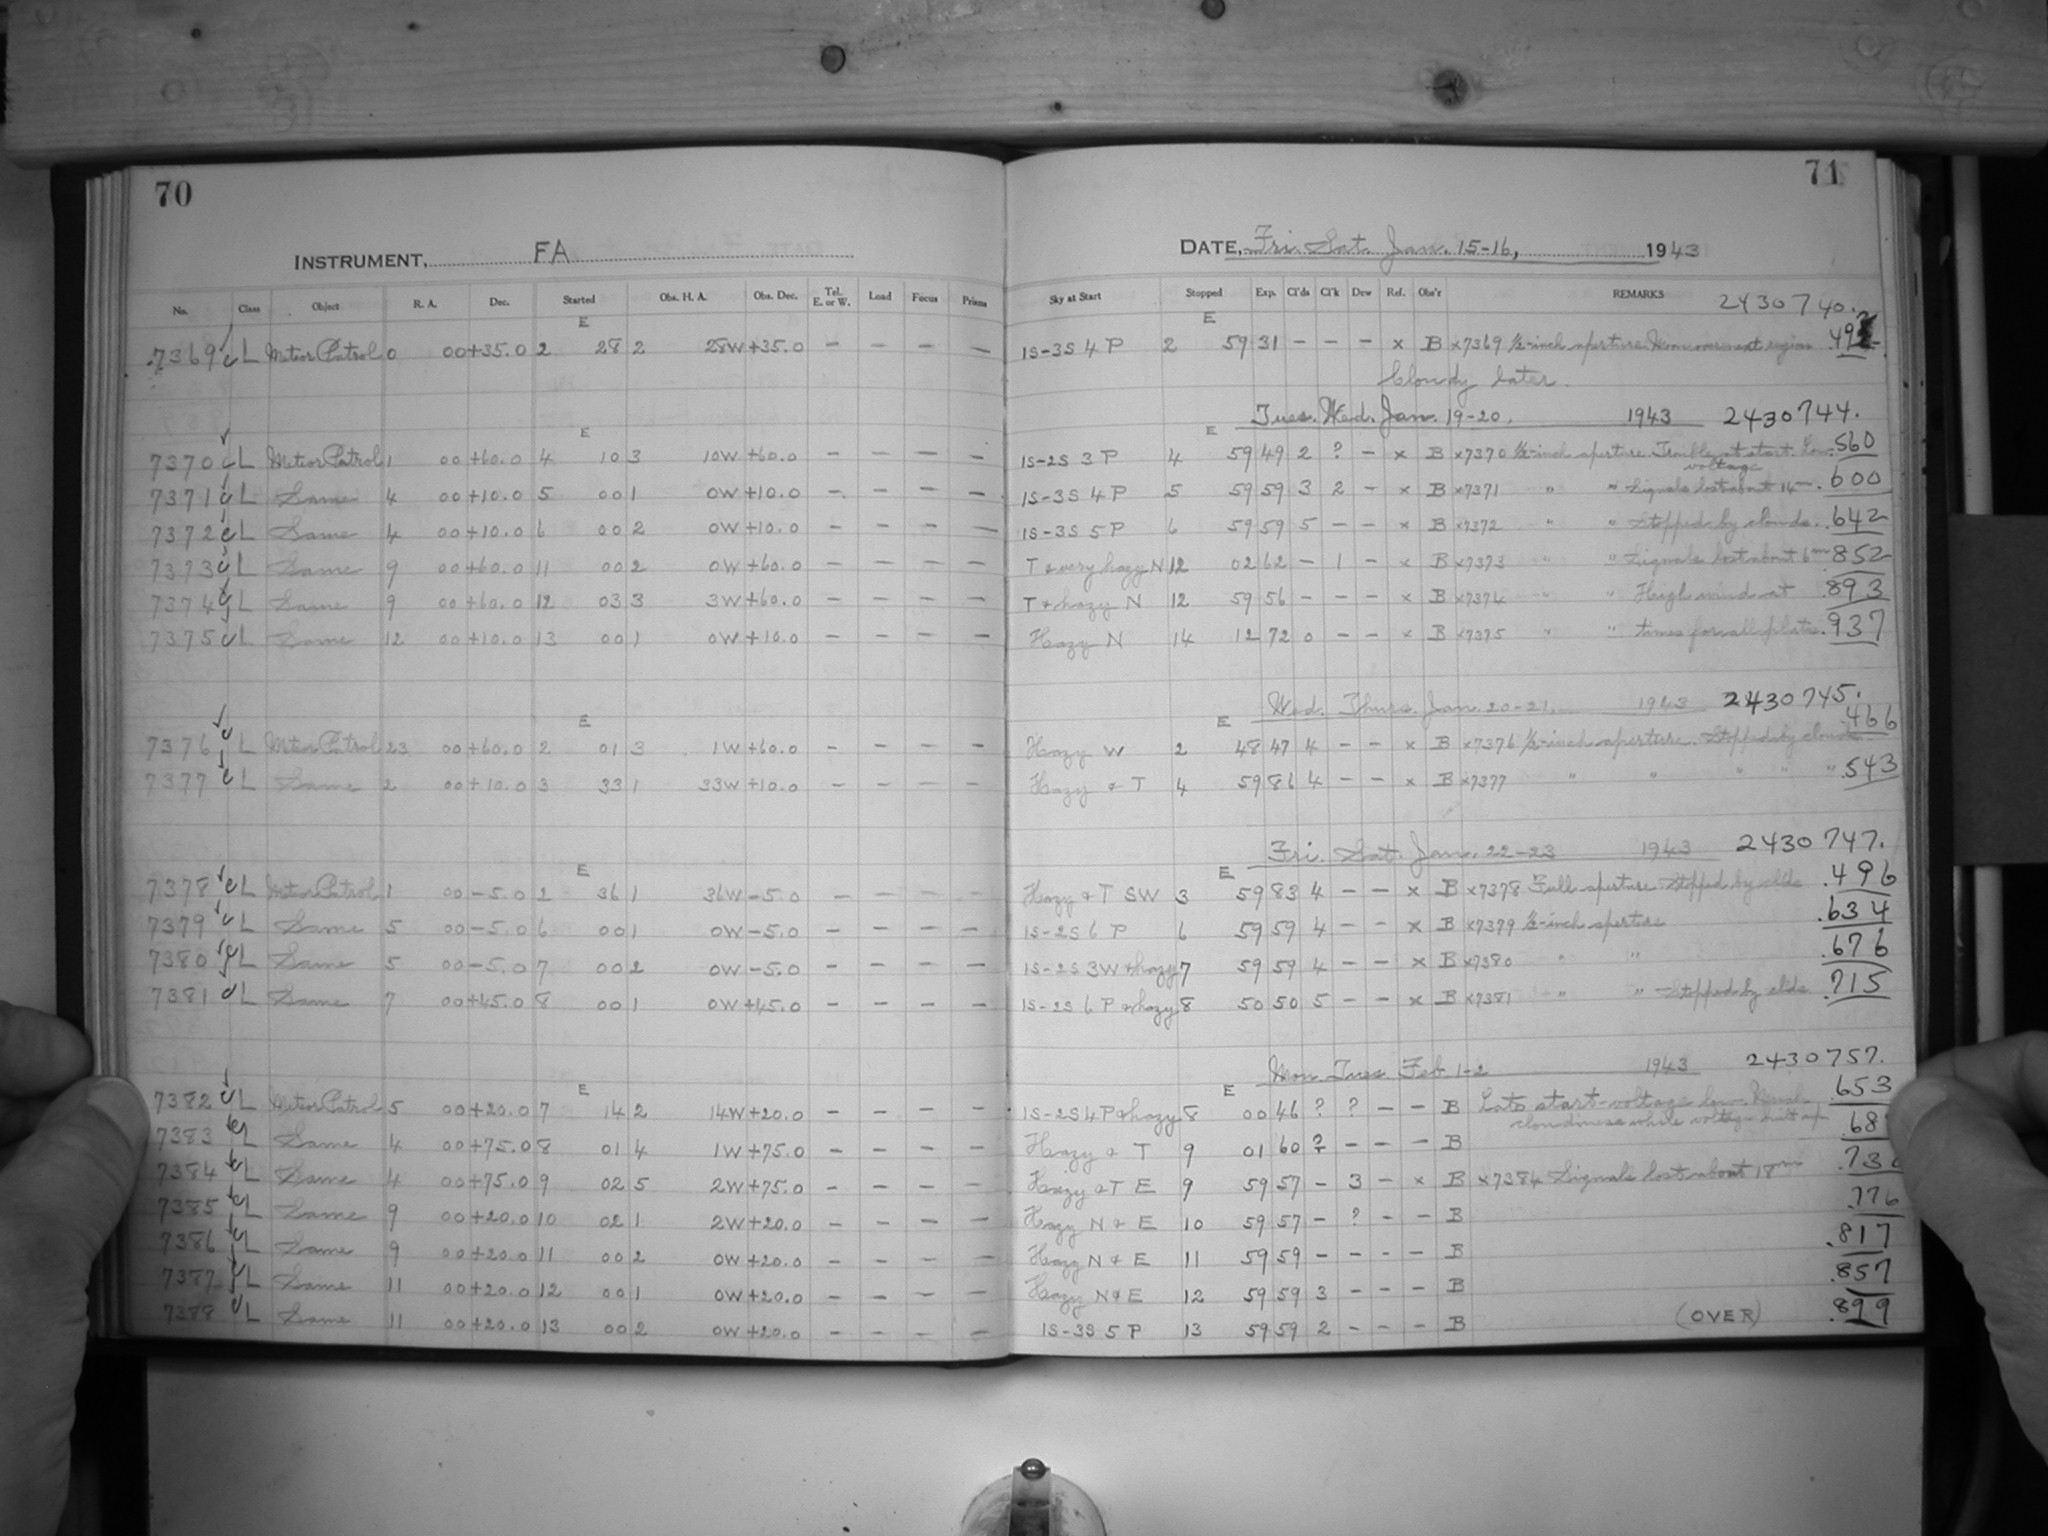 70
INSTRUMENT, FA
No. Class Object R. A. Dec. Started Obs. H. A. Obs. Dec. Tel. E. or W. Load Focus Prisms
E
7369 L Meteor Patrol 0 00 +35.0 2 28 2 28W +35.0 – – – –
E
7370 L Meteor Patrol 1 00 +60.0 4 10 3 10W +60.0 – – – –
7371 L Same 4 00 +10.0 5 00 1 0W +10.0 – – – –
7372 L Same 4 00 +10.0 6 00 2 0W +10.0 – – – –
7373 L Same 9 00 +60.0 11 00 2 0W +60.0 – – – –
7374 L Same 9 00 +60.0 12 03 3 3W +60.0 – – – –
7375 L Same 12 00 +10.0 13 00 1 0W +10.0 – – – –
E
7376 L Meteor Patrol 23 00 +60.0 2 01 3 1W +60.0 – – – –
7377 L Same 2 00 +10.0 3 33 1 33W +10.0 – – – –
E
7378 L Meteor Patrol 1 00 –5.0 2 36 1 36W –5.0 – – – –
7379 L Same 5 00 –5.0 6 00 1 0W –5.0 – – – –
7380 L Same 5 00 –5.0 7 00 2 0W –5.0 – – – –
7381 L Same 7 00 +45.0 8 00 1 0W +45.0 – – – –
E
7382 L Meteor Patrol 5 00 +20.0 7 14 2 14W +20.0 – – – –
7383 L Same 4 00 +75.0 8 01 4 1W +75.0 – – – –
7384 L Same 4 00 +75.0 9 02 5 2W +75.0 – – – –
7385 L Same 9 00 +20.0 10 02 1 2W +20.0 – – – –
7386 L Same 9 00 +20.0 11 00 2 0W +20.0 – – – –
7387 L Same 11 00 +20.0 12 00 1 0W +20.0 – – – –
7388 L Same 11 00 +20.0 13 00 2 0W +20.0 – – – –
71
DATE, Fri. Sat. Jan. 15-16, 1943
Sky at Start Stopped Exp. Cl'ds Cl'k Dew Ref. Obs'r REMARKS 2430740.
E
1S-3S 4 P 2 59 31 – – – x B x7369 ½-inch aperture. region .49
Cloudy later.
Tues. Wed. Jan. 19-20. 1943 2430744.
E
1S-2S 3 P 4 59 49 2 ? – x B x7370 ½-inch aperture. Trouble at start. Low .560
voltage
1S-3S 4 P 5 59 59 3 2 – x B x7371 " " Signals lost about 14m .600
1S-3S 5 P 6 59 59 5 – – x B x7372 " " Stopped by clouds. .642
T & very hazy N 12 02 62 – 1 – x B x7373 " " Signals lost about 6m .852
T & hazy N 12 59 56 – – – x B x7374 " " High wind at .893
Hazy N 14 12 72 0 – – x B x7375 " " times for all plates. .937
Wed. Thurs. Jan. 20-21. 1943 2430745.
E
Hazy W 2 48 47 4 – – x B x7376 ½-inch aperture. Stopped by clouds .466
Hazy & T 4 59 86 4 – – x B x7377 " " " " " .543
Fri. Sat. Jan. 22-23 1943 2430747.
E
Hazy & T SW 3 59 83 4 – – x B x7378 Full aperture Stopped by clds .496
1S-2S 6 P 6 59 59 4 – – x B x7379 ½-inch aperture .634
1S-2S 3W & hazy 7 59 59 4 – – x B x7380 " " .676
1S-2S 6 P & hazy 8 50 50 5 – – x B x7381 " " Stopped by clds. .715
Mon. Tues. Feb 1-2 1943 2430757.
E
1S-2S 4 P & hazy 8 00 46 ? ? – – B Late start-voltage low. .653
cloudiness while voltage built up
Hazy & T 9 01 60 ? – – – B .68
Hazy & T E 9 59 57 – 3 – x B x7384 Signals lost about 18m .73
Hazy N & E 10 59 57 – ? – – B .776
Hazy N & E 11 59 59 – – – – B .817
Hazy N & E 12 59 59 3 – – – B .857
1S-3S 5 P 13 59 59 2 – – – B (OVER) .899